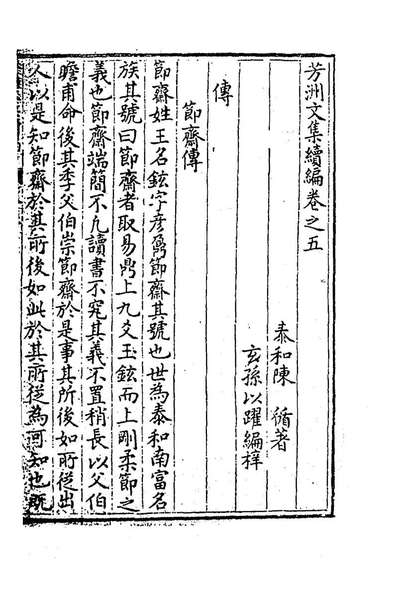 芳洲文集續編卷之五
泰和陳　循著
玄孫以躍編梓
傳
節齋傳
節齋姓王名鉉字彥鼐節齋其號也世為泰和南富名
族其號曰節齋者取易鼎上九爻玉鉉而上剛柔節之
義也節齋端簡不凡讀書不究其義不置稍長以父伯
瞻甫命後其季父伯崇節齋於是事其所後如所從出
人以是知節齋於其所後如此於其所從為可知也既